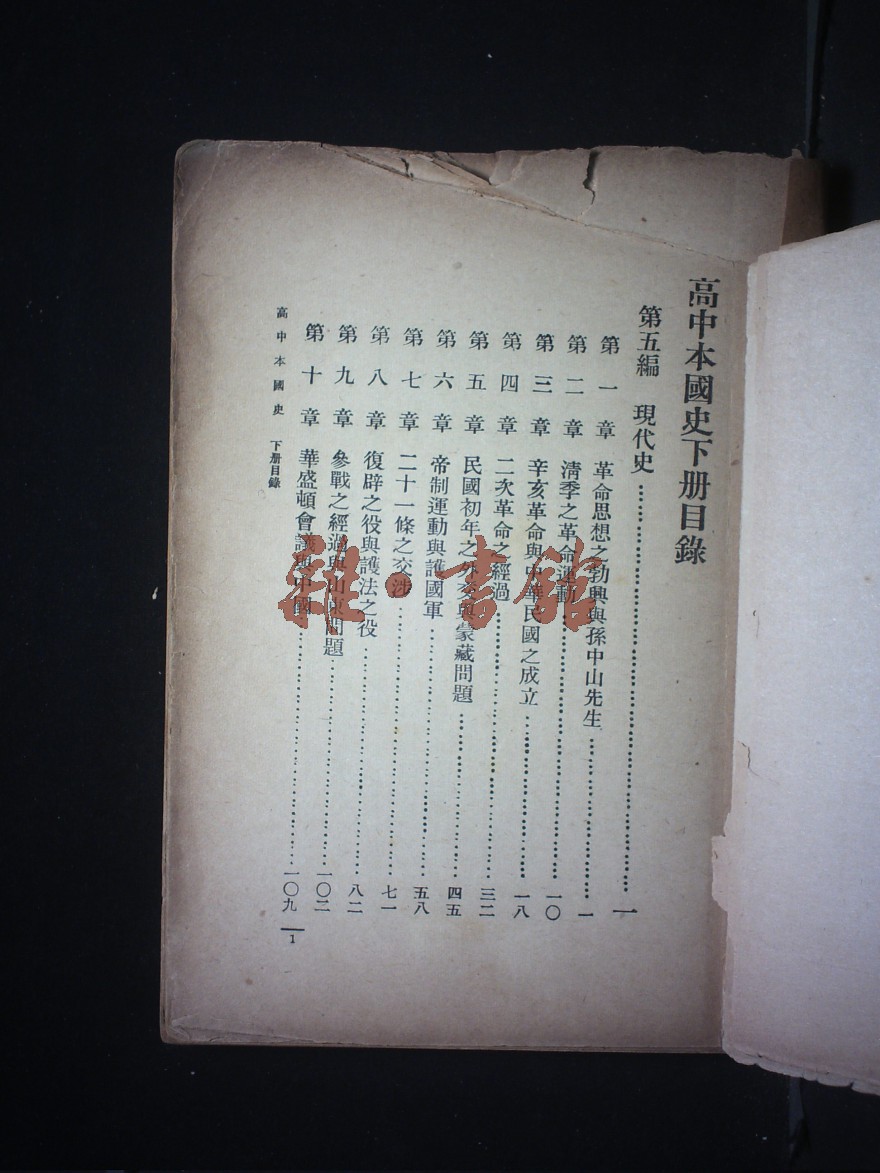 高中本國史下册目錄
第五編 現代史……………………一
第一章 革命思想之勃興與孫中山先生……………一
第二章 清季之革命運動……………一〇
第三章 辛亥革命與中華民國之成立……………一八
第四章 二次革命之經過……………三二
第五章 民國初年之外交與蒙藏問題……………四五
第六章 帝制運動與護國軍……………五八
第七章 二十一條之交涉……………七一
第八章 復辟之役與護法之役……………八二
第九章 參戰之經過與山東問題……………一〇二
第十章 華盛頓會議與中國……………一〇九
高中本國史 下册目錄
1
雜·書館